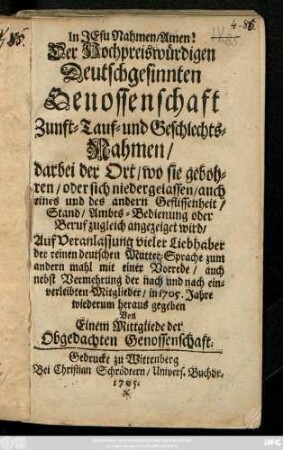 4-86.
In JEsu Nahmen/Amen!
Der Hochpreiswürdigen
Deutschgesinnten
Genossenschaft
Zunft-Tauf-und Geschlechts-
Nahmen/
darbei der Ort/wo sie gebohr-
ren/oder sich niedergelassen/auch
eines und des andern Geflissenheit/
Stand/Ambts-Bedienung oder
Beruf zugleich angezeiget wird/
Auf Veranlassung vieler Liebhaber
der reinen deutschen Mutter-Sprache zum
andern mahl mit einer Vorrede/auch
nebst Vermehrung der nach und nach ein-
verleibten Mitglieder/in 1705. Jahre
wiederum heraus gegeben
Von
Einem Mittgliede der
Obgedachten Genossenschaft.
Gedruckt zu Wittenberg
Bei Christian Schrödtern/Univers. Buchdr.
1705.